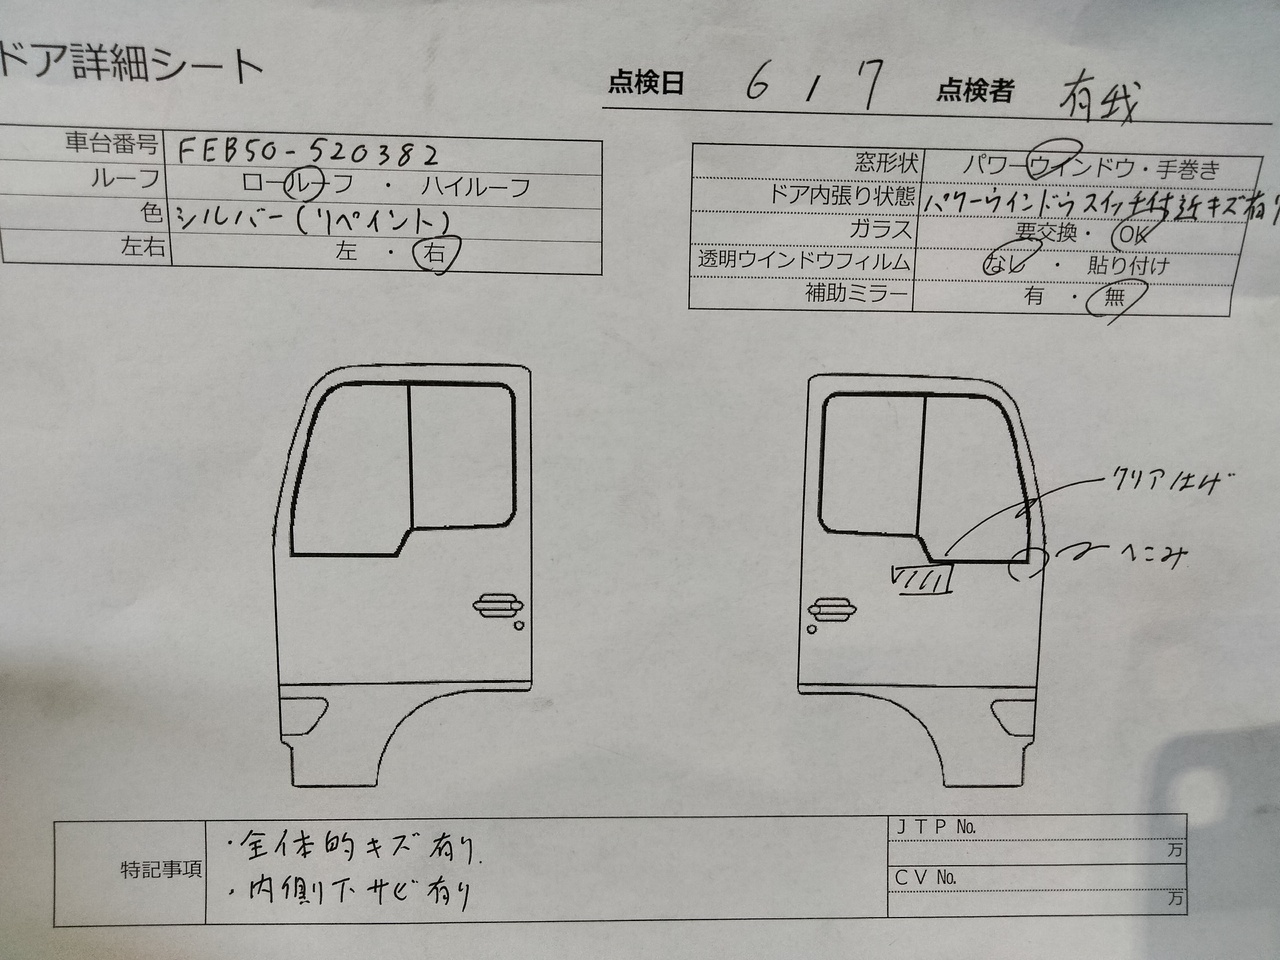 ドア詳細シート
点検日 6 / 7 点検者 有我
車台番号 FEB50-520382
ルーフ ロールーフ ・ ハイルーフ
色 シルバー(リペイント)
左右 左 ・ 右
窓形状 パワーウインドウ・手巻き
ドア内張り状態 パワーウインドウスイッチ付近キズ有り
ガラス 要交換・ OK
透明ウインドウフィルム なし ・ 貼り付け
補助ミラー 有 ・ 無
クリアはげ
へこみ
特記事項
・全体的キズ有り.
・内側下サビ有り
JTP No.
万
CV No.
万